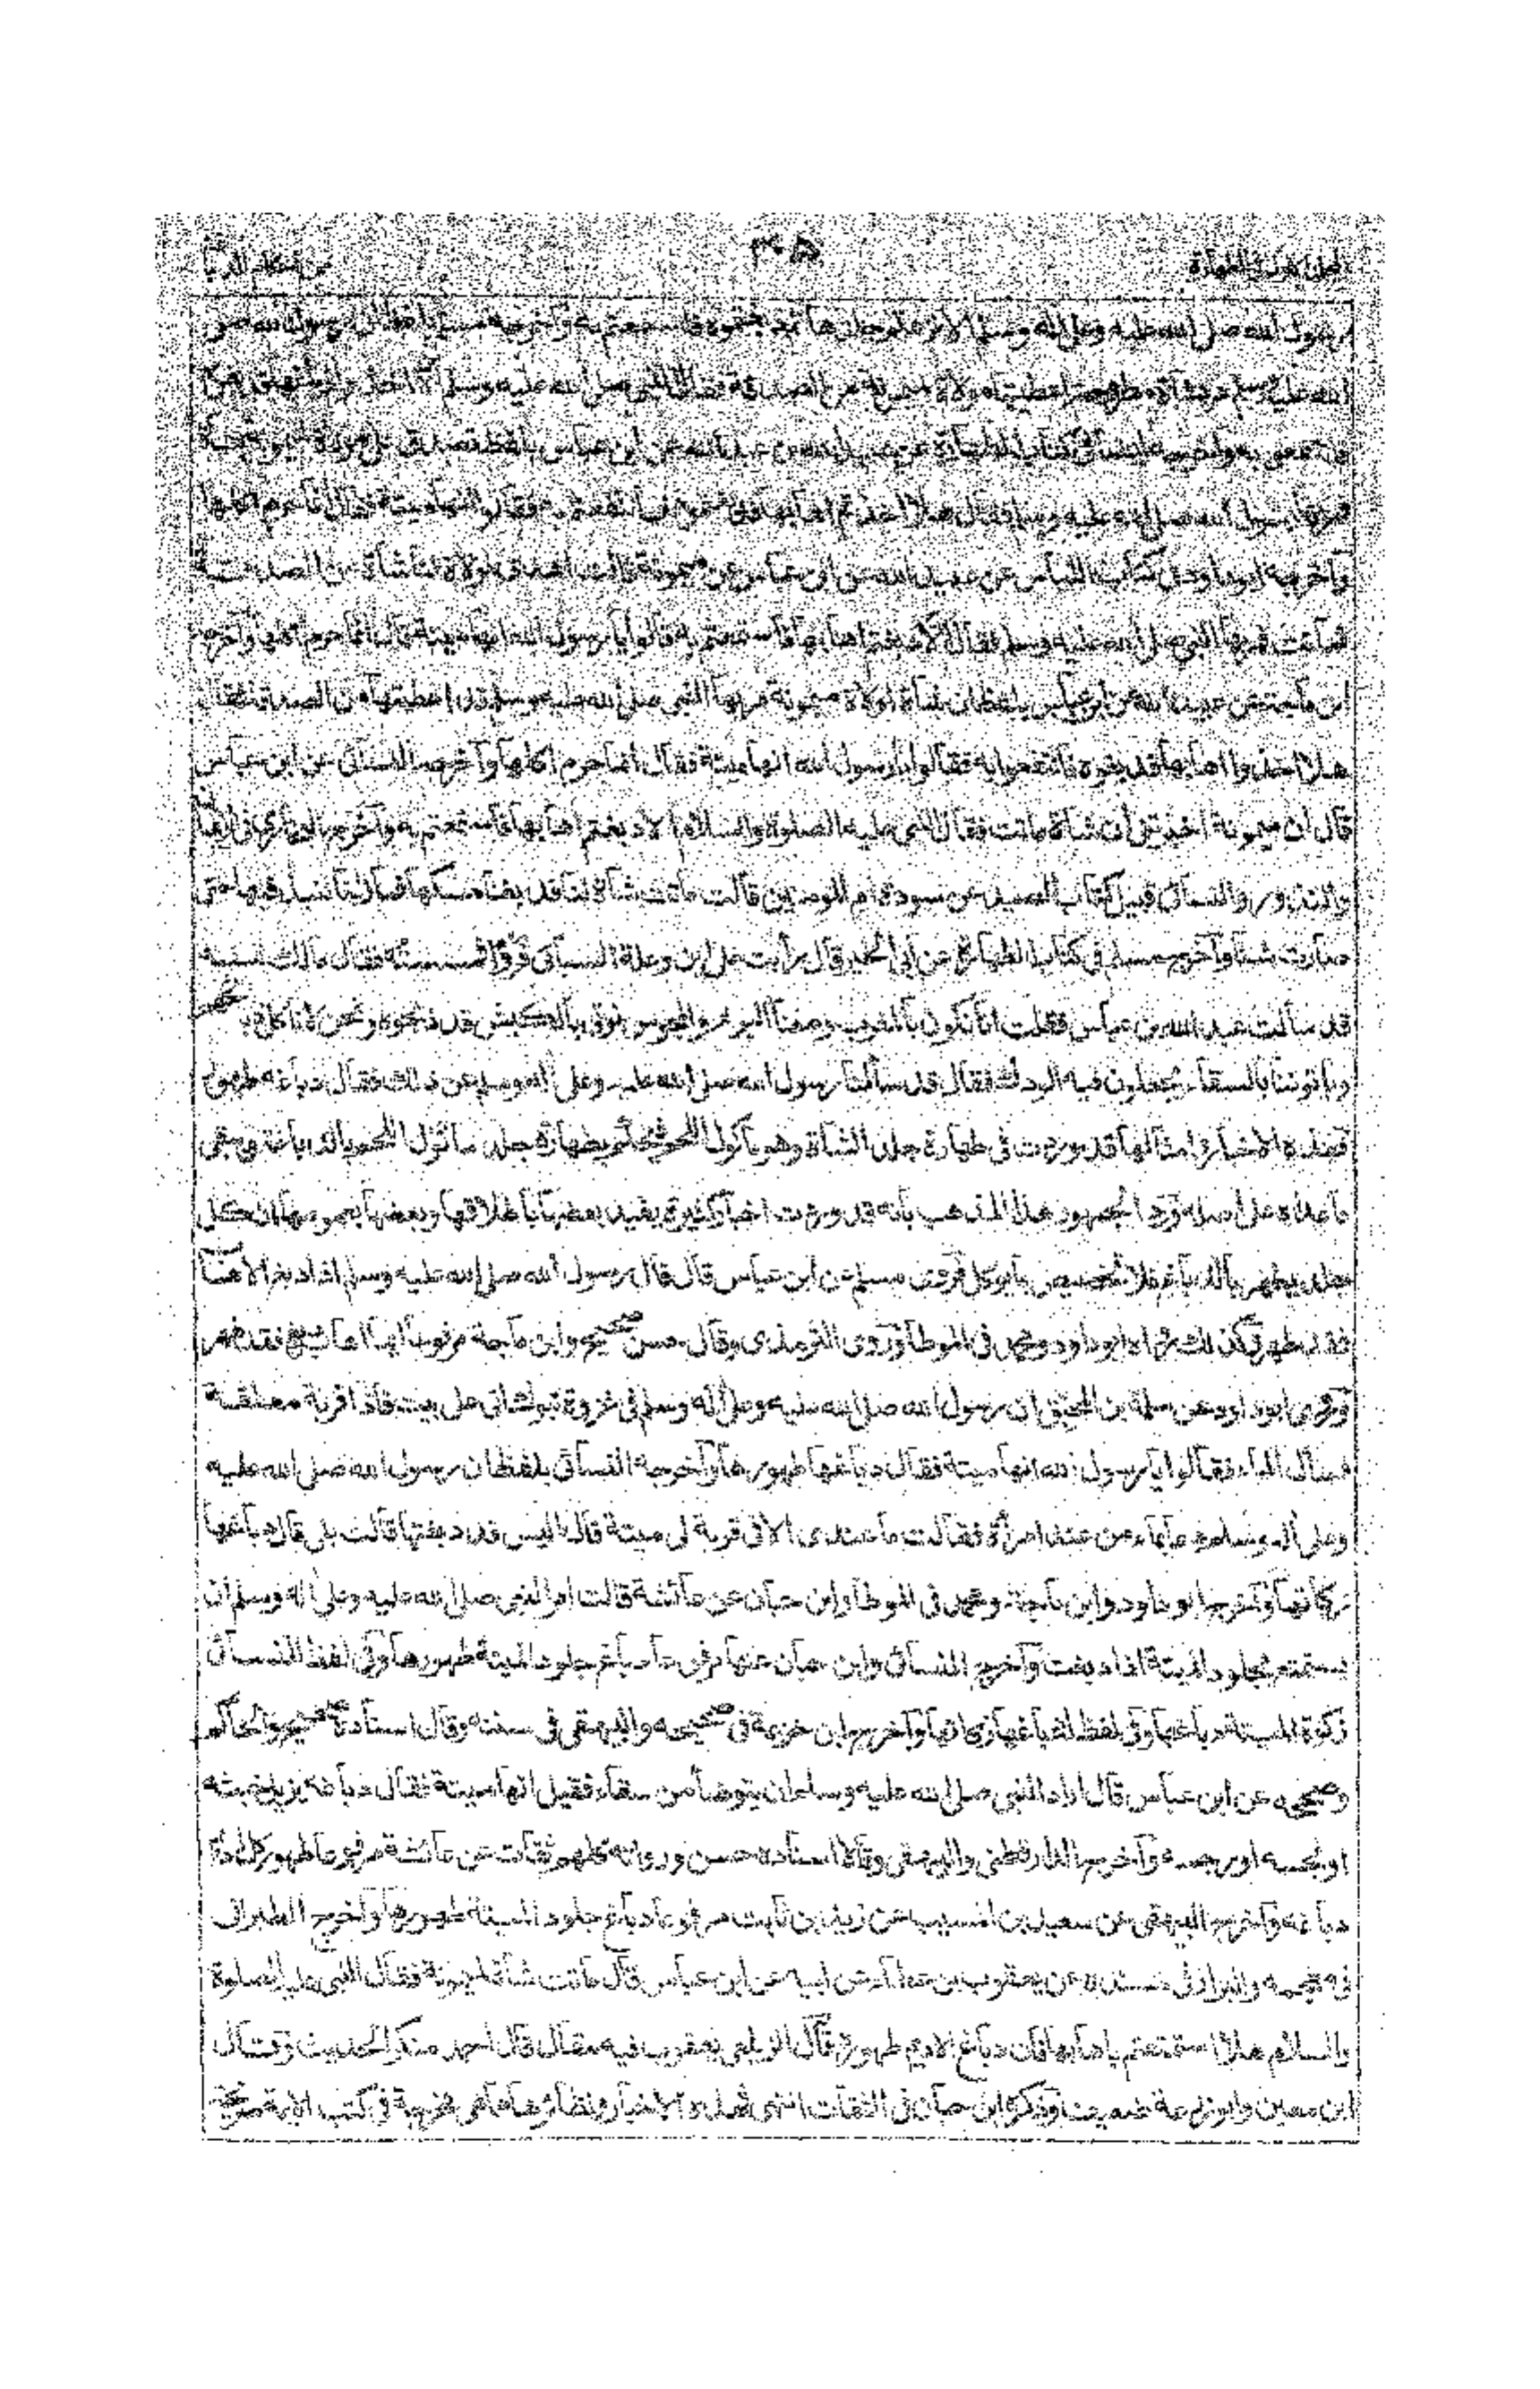 ٤٠٥
رسول الله صلى الله عليه وعلى آله وسلم الا نزعتم جلدها فاستمتعتم به وآخرجه مسلم
الله عليه وسلم مولاة ميمونة من الصدقة فقال النبي صلى الله عليه وسلم
عن ابن عباس بلفظ تصدق على مولاة
رسول الله صلى الله عليه وسلم فقال هلا اخذتم اهابها فانتفعتم به فقالوا انها ميتة فقال انما حرم اكلها
وآخرجه ابوداود في كتاب اللباس عن عبيد الله عن ابن عباس عن ميمونة قالت اهدي لمولاة لنا شاة من الصدقة
فماتت فمر بها النبي صلى الله عليه وسلم فقال الا دبغتم اهابها فاستمتعتم به قالوا يا رسول الله انها ميتة قال انما حرم اكلها وآخرجه
ابن ماجة عن عبيد الله عن ابن عباس بلفظ ان شاة لمولاة ميمونة مر بها النبي صلى الله عليه وسلم قد اعطيتها من الصدقة فقال
هلا اخذوا اهابها فدبغوه فانتفعوا به فقالوا يا رسول الله انها ميتة فقال انما حرم اكلها وآخرجه النسائي عن ابن عباس
قال ان ميمونة اخبرتني ان شاة ماتت فقال النبي عليه الصلوة والسلام الا دبغتم اهابها فاستمتعتم به وآخرجه البخاري في
والنذور والنسائي قبيل كتاب الصيد عن سودة ام المومنين قالت ماتت شاة لنا فدبغنا مسكها فما زلنا ننبذ فيها حتى
صارت شنا وآخرجه مسلم في كتاب الطهارة عن ابي الخير قال رأيت على ابن وعلة السبائي فروا فمسسته فقال مالك تمسه
قد سألت عبد الله بن عباس فقلت انا نكون بالمغرب ومعنا البربر والمجوس نوتى بالكبش قد ذبحوه ونحن لا ناكل ذبائحهم
وياتوننا بالسقاء يجعلون فيه الودك فقال قد سألنا رسول الله صلى الله عليه وعلى آله وسلم عن ذلك فقال دباغه طهوره
فهذه الاخبار وامثالها قد وردت في طهارة جلد الشاة وهو ماكول اللحم فنحكم بطهارة جلد ماكول اللحم بالدباغة وبقي
ما عداه على اصله ورد الجمهور هذا المذهب بانه قد وردت اخبار كثيرة يفيد بعضها باطلاقها وبعضها بعمومها ان كل
جلد يطهر بالدباغ فلا تخصيص بماكول فروى مسلم عن ابن عباس قال قال رسول الله صلى الله عليه وسلم اذا دبغ الاهاب
فقد طهر وكذلك رواه ابوداود ومحمد في الموطأ وروى الترمذي وقال حسن صحيح وابن ماجة مرفوعا ايما اهاب دبغ فقد طهر
وروى ابوداود عن سلمة بن المحبق ان رسول الله صلى الله عليه وعلى آله وسلم في غزوة تبوك اتى على بيت فاذا قربة معلقة
فسأل الماء فقالوا يا رسول الله انها ميتة فقال دباغها طهورها وآخرجه النسائي بلفظ ان رسول الله صلى الله عليه
وعلى آله وسلم دعا بماء من عند امرأة فقالت ما عندي الا في قربة لي ميتة قال اليس قد دبغتها قالت بلى قال دباغها
زكاتها وآخرج ابوداود وابن ماجة ومحمد في الموطا وابن حبان عن عائشة قالت امر النبي صلى الله عليه وعلى آله وسلم ان
يستمتع بجلود الميتة اذا دبغت وآخرج النسائي وابن حبان عنها مرفوعا دباغ جلود الميتة طهورها وفي لفظ النسائي
زكوة الميتة دباغها وفي لفظ له دباغها زكاتها وآخرج ابن خزيمة في صحيحه والبيهقي في سننه وقال اسناده صحيح والحاكم
وصححه عن ابن عباس قال اراد النبي صلى الله عليه وسلم ان يتوضأ من سقاء فقيل انها ميتة فقال دباغه يزيل خبثه
او نجسه او رجسه وآخرج الدارقطني والبيهقي وقالا اسناده حسن ورواته كلهم ثقات عن عائشة مرفوعا طهور كل اديم
دباغه وآخرج البيهقي عن سعيد بن المسيب عن زيد بن ثابت مرفوعا دباغ جلود الميتة طهورها وآخرج الطبراني
في معجمه والبزار في مسنده عن يعقوب بن عطاء عن ابيه عن ابن عباس قال ماتت شاة لميمونة فقال النبي عليه الصلوة
والسلام هلا استمتعتم باهابها فان دباغ الاديم طهوره قال الزيلعي يعقوب فيه مقال قال احمد منكر الحديث وقال
ابن معين وابو زرعة ضعيف وذكره ابن حبان في الثقات انتهى فهذه الاخبار ونظائرها مما هي مخرجة في كتب الائمة